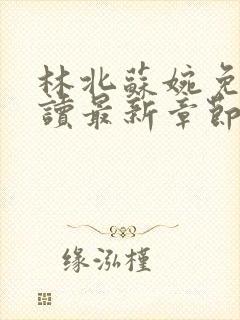 林北蘇婉免
讀最新章節
缘泓槿